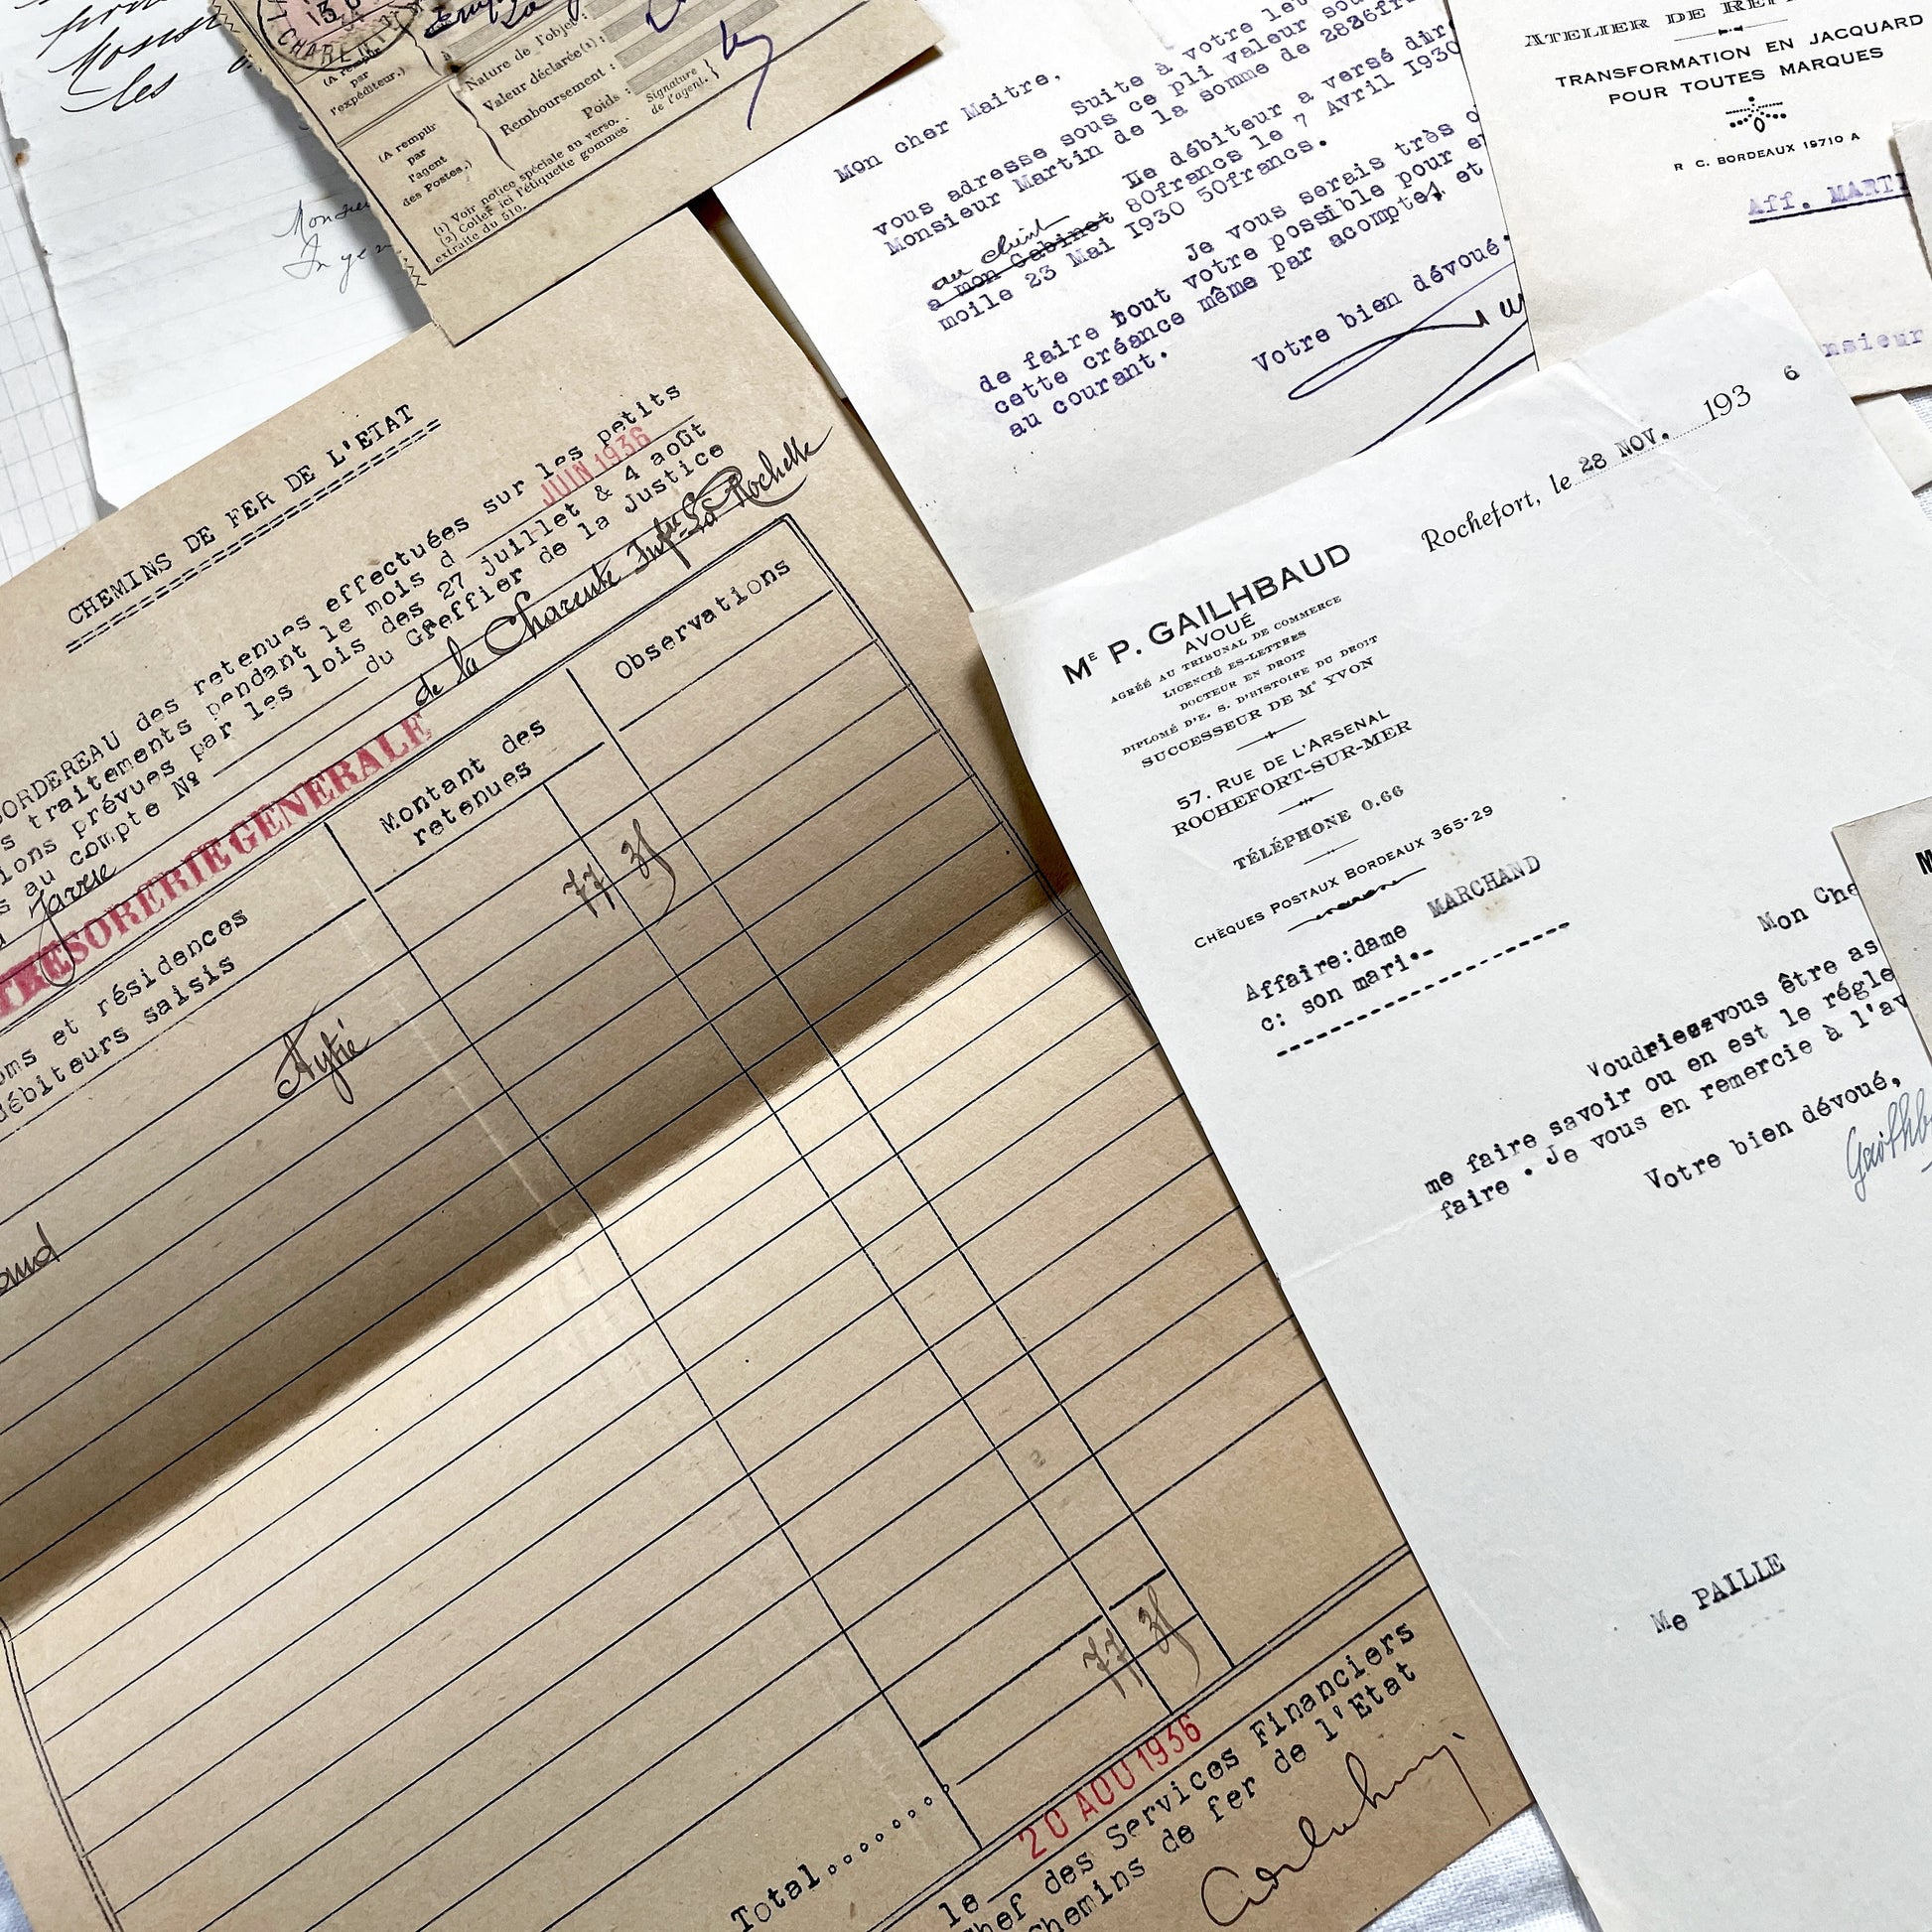 les
CHAREN
(A remplir
par
l'expéditeur.)
Nature de l'objet:
Valeur déclarée(1):
Remboursement :
Poids :
Signature
de l'agent.
(A remplir
par
l'agent
des Postes.)
(1) Voir notice spéciale au verso.
(2) Coller ici l'étiquette gommée
extraite du 510.
Mon cher Maitre,
Suite à votre let
vous adresse sous ce pli valeur sou
Monsieur Martin de la somme de
Le débiteur a versé dir
au client
a mon Cabinet 80francs le 7 Avril I930
moile 23 Mai I930 50francs.
Je vous serais très o
de faire tout votre possible pour e
cette créance même par acompte, et
au courant.
Votre bien dévoué.
ATELIER DE
TRANSFORMATION EN JACQUARD
POUR TOUTES MARQUES
R C. BORDEAUX 19710 A
Aff. MARTI
nsieur
CHEMINS DE FER DE L'ETAT
BORDEREAU des retenues effectuées sur les petits
s traitements pendant le mois d JUIN 1936
ions prévues par les lois des 27 juillet & 4 août
s au compte Nº du Greffier de la Justice
de la Charente Infre La Rochelle
TRESORERIE GENERALE
oms et résidences
débiteurs saisis
Montant des
retenues
Observations
Aytré
77 35
aud
77 35
Total........
20 AOU 1936
le
Chef des Services Financiers
Chemins de fer de l'Etat
Rochefort, le 28 NOV. 193 6
Me P. GAILHBAUD
AVOUÉ
AGRÉÉ AU TRIBUNAL DE COMMERCE
LICENCIÉ ES-LETTRES
DOCTEUR EN DROIT
DIPLOMÉ D'E. S. D'HISTOIRE DU DROIT
SUCCESSEUR DE Me YVON
57. RUE DE L'ARSENAL
ROCHEFORT-SUR-MER
TÉLÉPHONE 0.66
CHÈQUES POSTAUX BORDEAUX 365-29
Affaire:dame MARCHAND
c: son mari.-
Mon Che
Voudriez-vous être as
me faire savoir ou en est le régle
faire . Je vous en remercie à l'av
Votre bien dévoué,
Me PAILLE
M